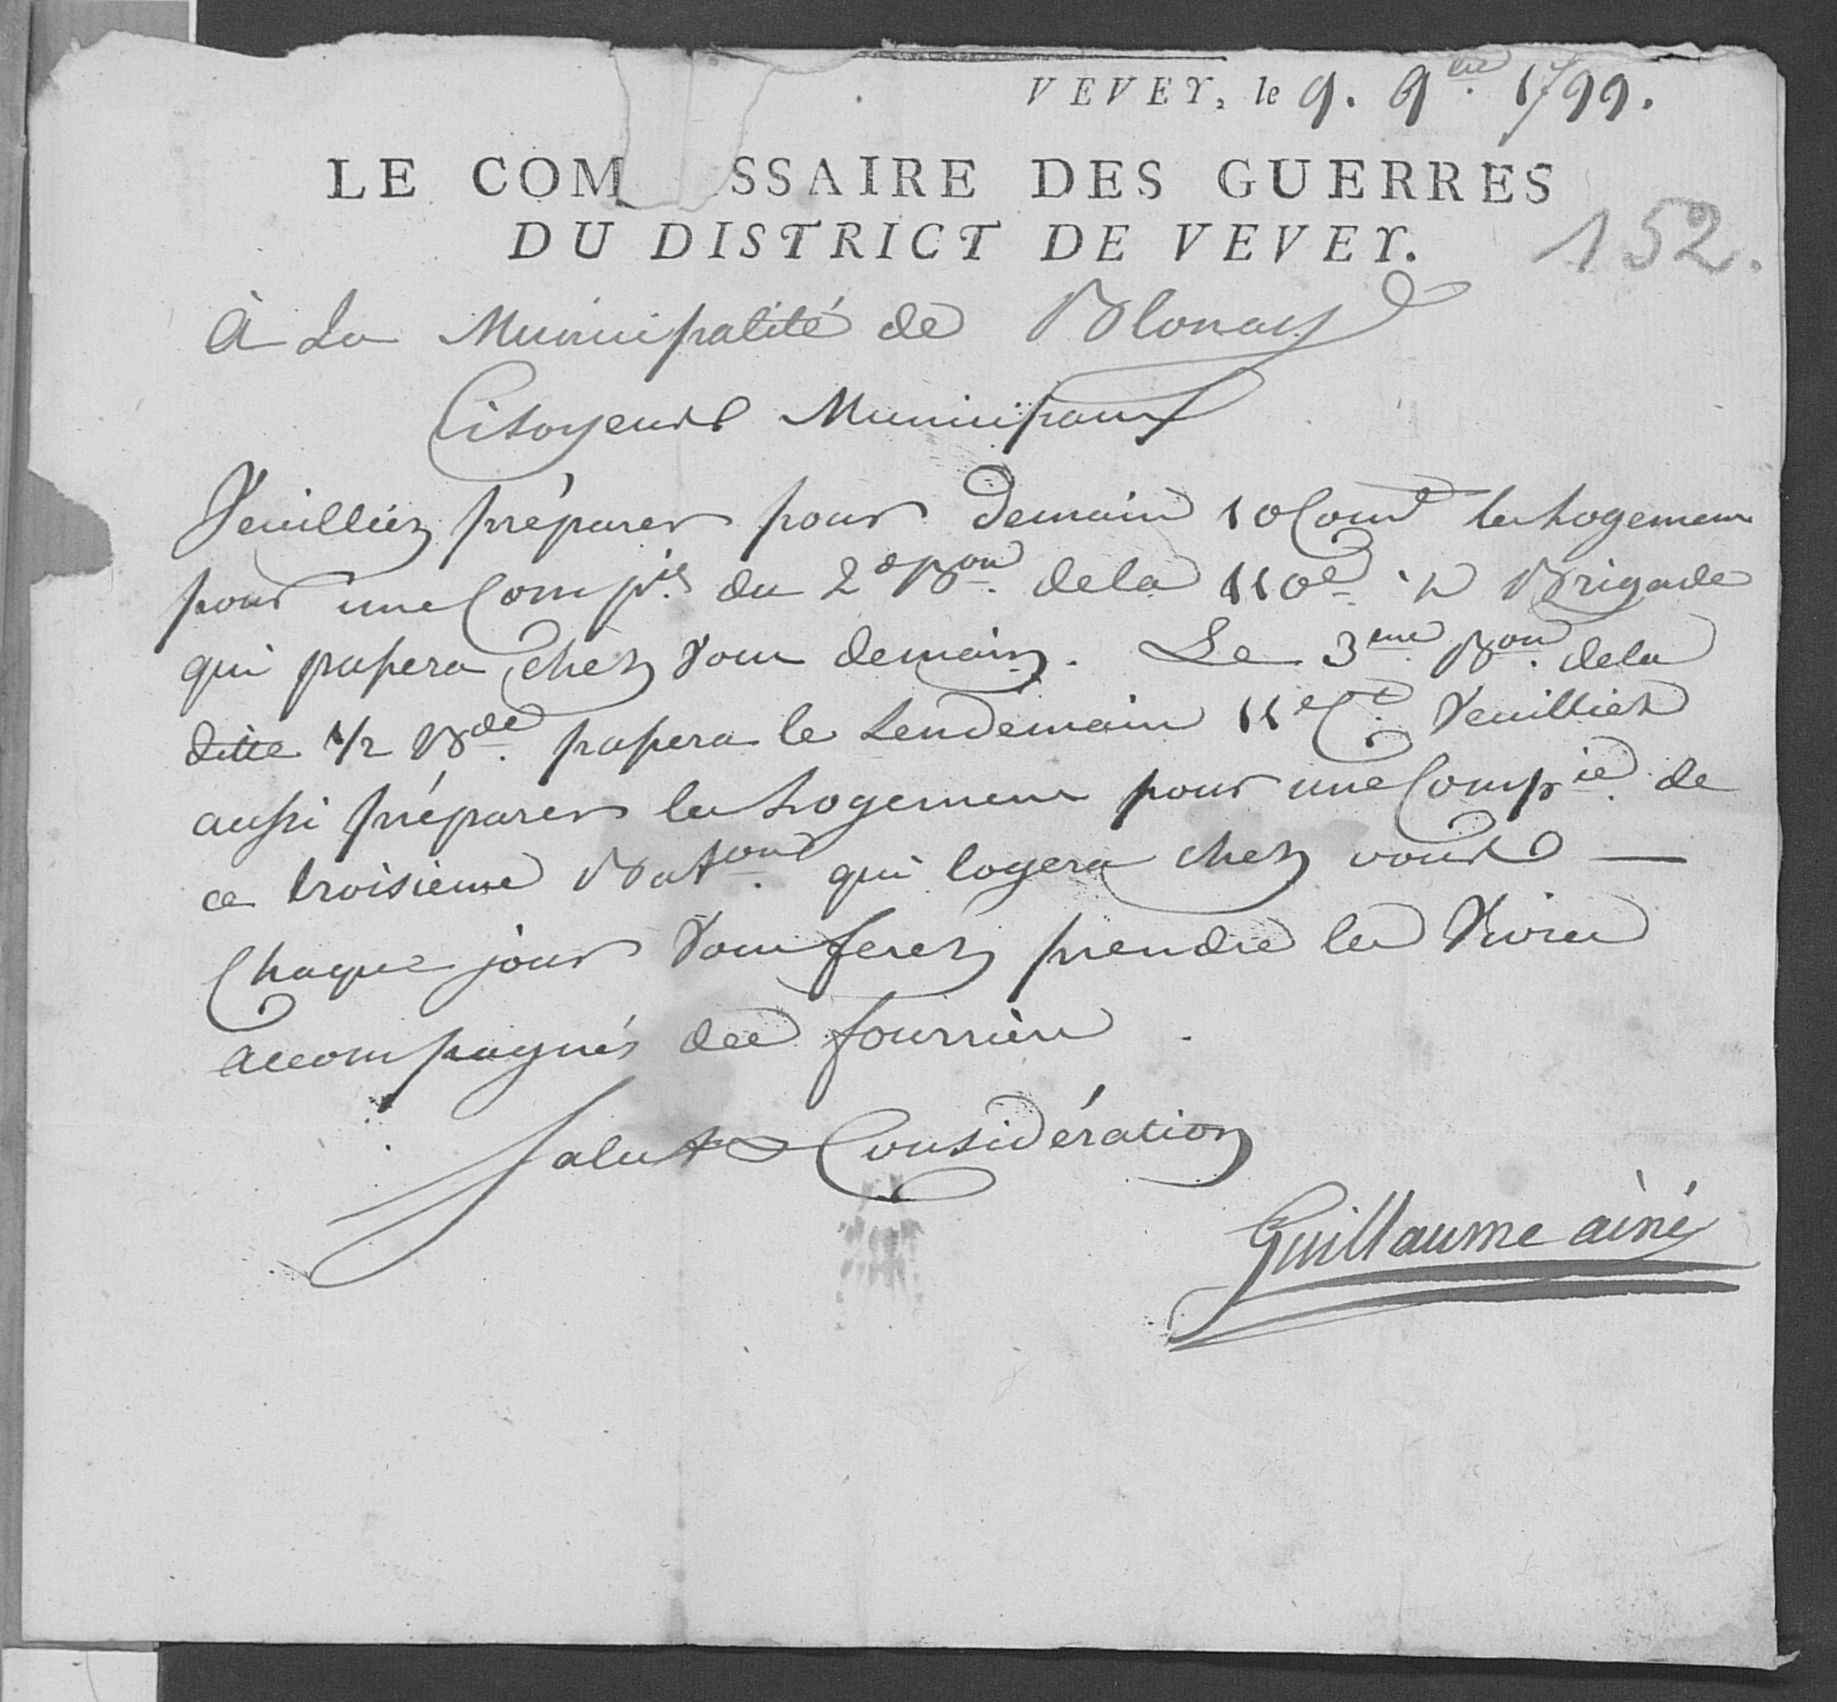 VEVEY, le 9. 9bre. 1799.
LE COM SSAIRE DES GUERRES
DU DISTRICT DE VEVEY.
152.
à La Municipalité de Blonay
Citoyens Municipaux
Veuilliez préparer pour demain 10 Cour.t les Logemens
pour une Comp.ie du 2e B.on de la 110e ½ Brigade
qui passera chez vous demain. Le 3me B.on de la
ditte 1/2 B.de passera le Lendemain 11e C.t Veuilliez
aussi préparer les Logemens pour une Comp.ie de
ce troisieme Bat.on qui logera chez vous —
Chaque jour vous ferez prendre les Vivres
accompagnés des fourriers.
Salut & Considération
Guillaume ainé